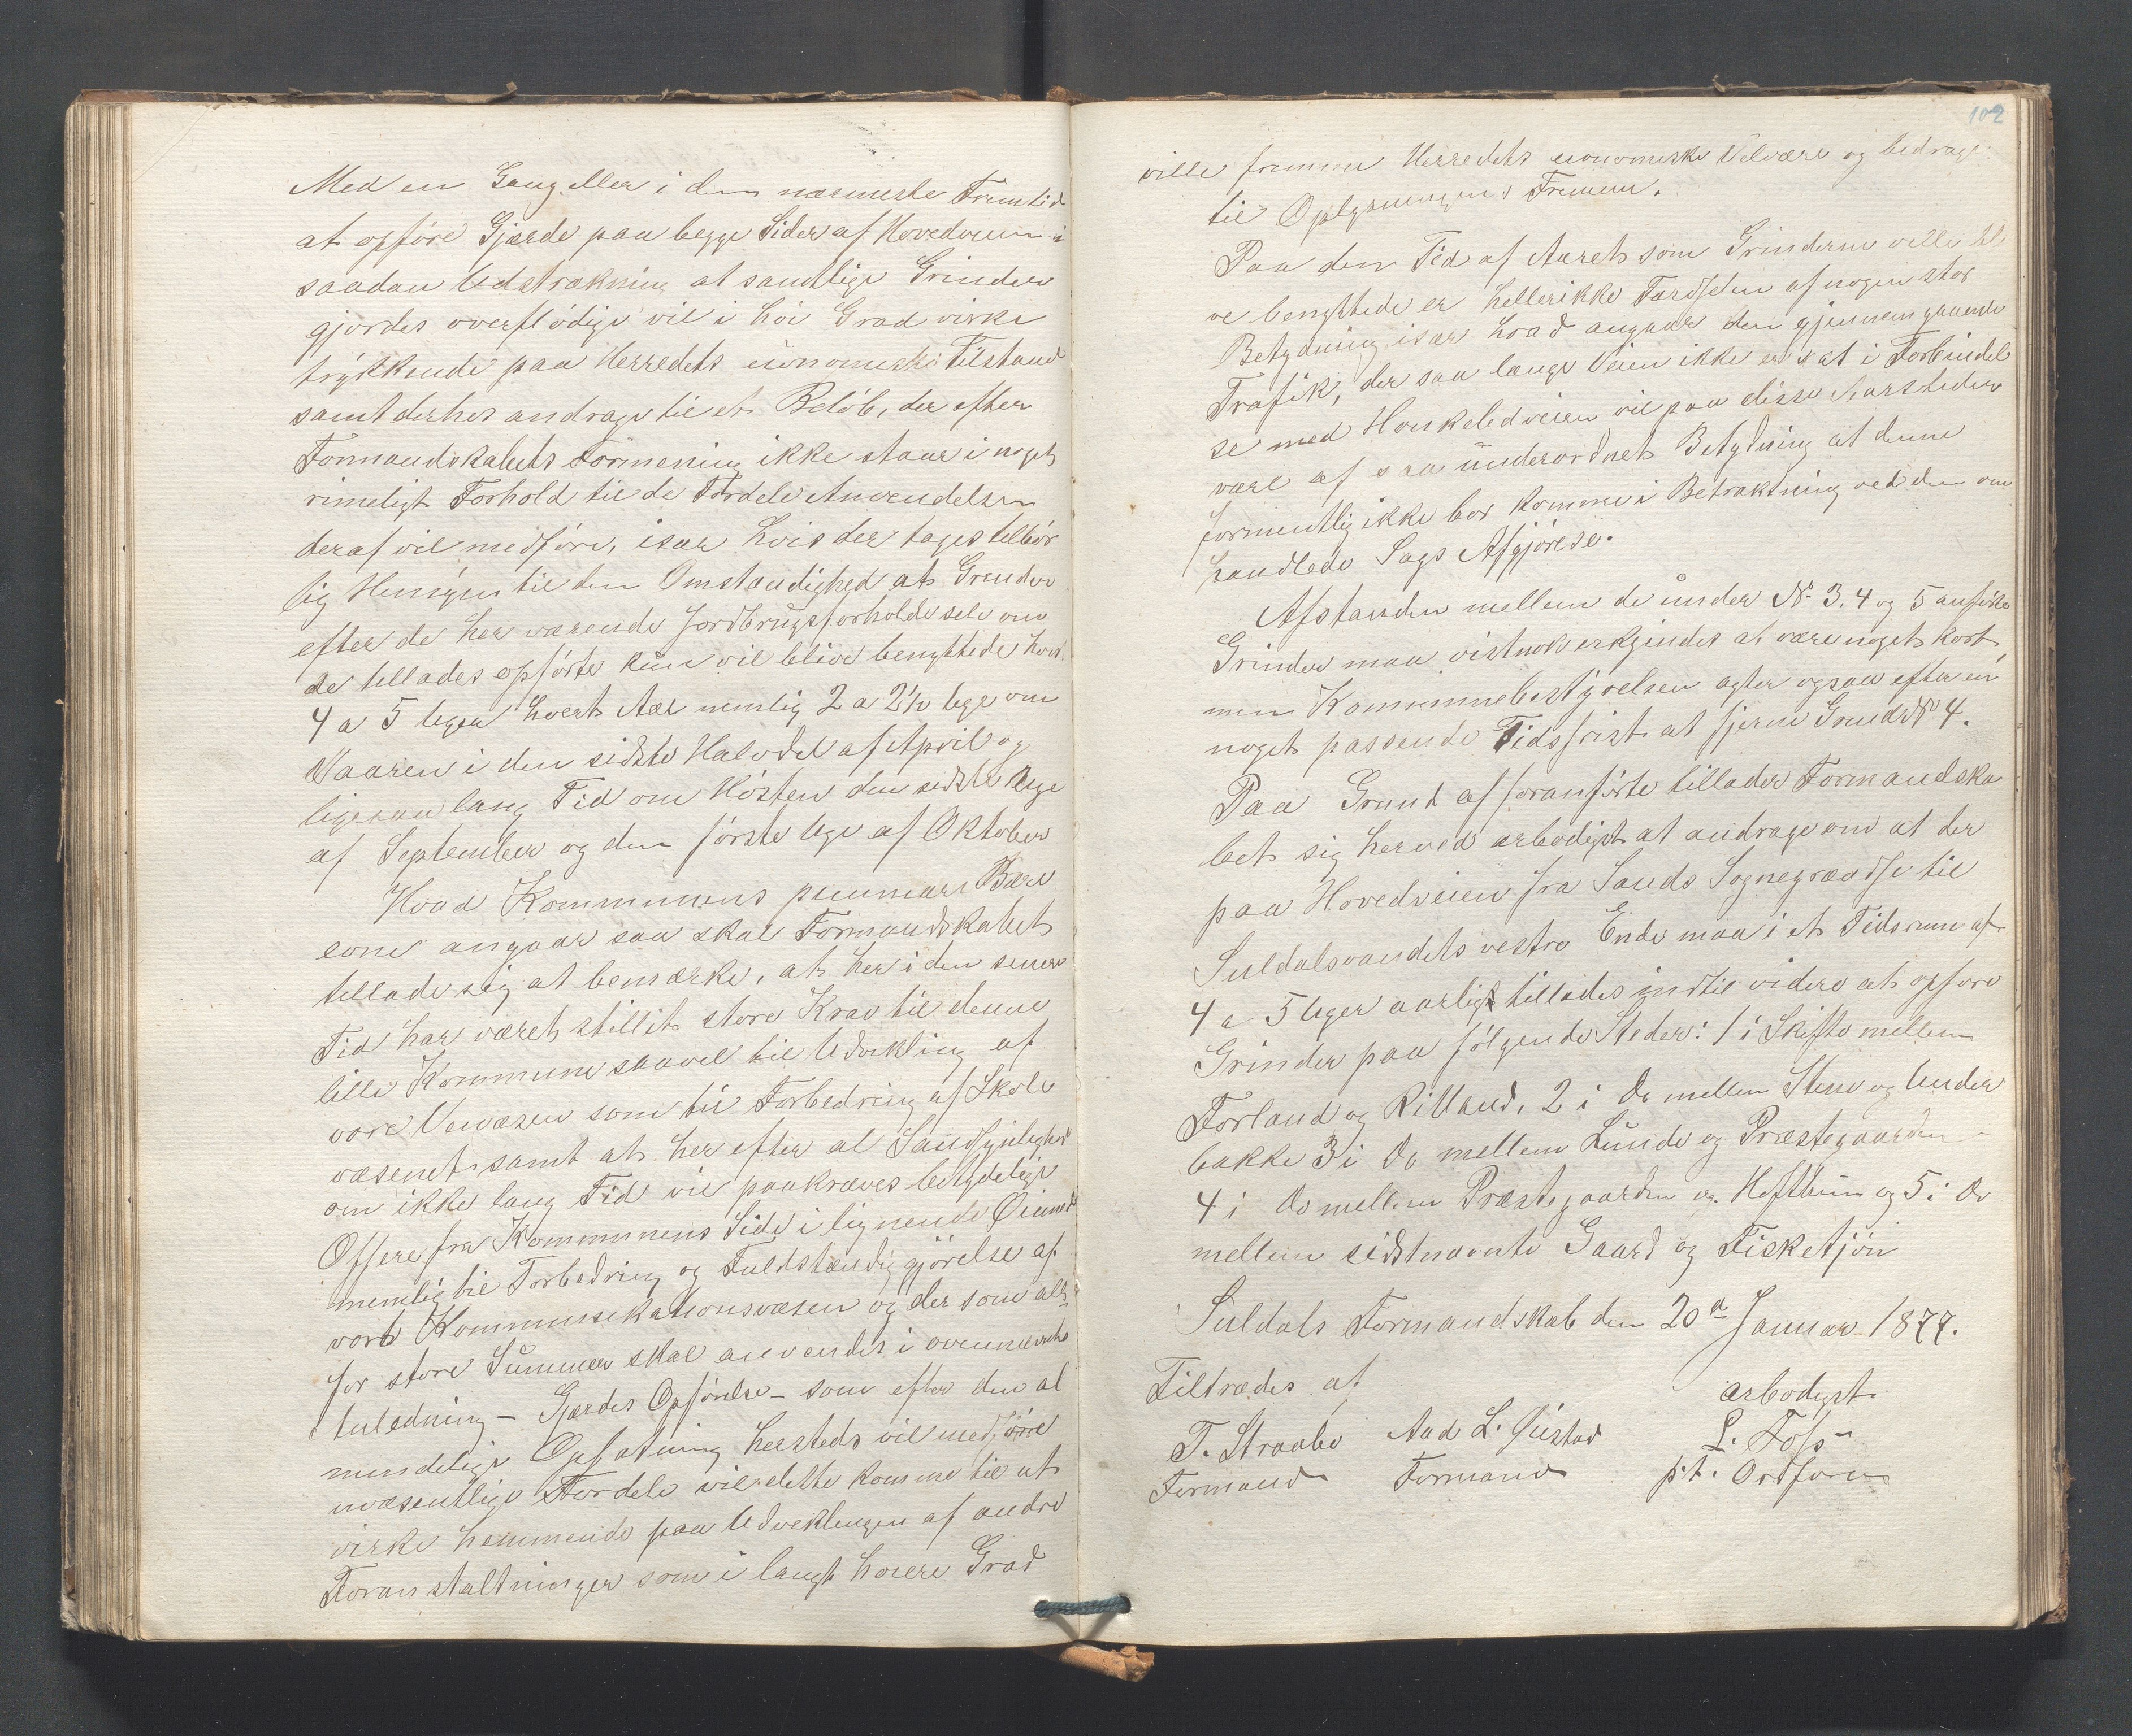 Med en Gang eller i den nærmeste Fremtid
at opföre Gjærde paa begge Sider af Hovedveien i
saadan Udstrækning at samtlige Grinder
gjördes overflödige vil i höi Grad virke
trykkende paa Herredets öconomiske Tilstand
samt derhos andrage til et Belöb, der efter
Formandskabets Formening ikke staar i noget
rimeligt Forhold til de Fordele Anvendelsen
deraf vil medföre, især hvis der tages tilbör
lig Hensyn til den Omstændighed at Grinder
efter de her værende Jordbrugsforholde selv om
de tillades opförte kun vil blive benyttede hver
4 a 5 Uger hvert Aar nemlig 2 a 2½ Uge om
Vaaren i den sidste Halvdel af April og
ligesaa lang Tid om Hösten den sidste Uge
af September og den förste Uge af Oktober
Hvad Kommunens pecuniære Bære
evne angaar saa skal Formandskabet
tillade sig at bemærke, at her i den senere
Tid har været stillet store Krav til denne
lille Kommune saavel til Udvikling af
vore Veivæsen som til Forbedring af Skole
væsenet samt at her efter al Sandsynlighed
om ikke lang Tid vil paakræves betydelige
Offere fra Kommunens Side i lignende Öiemed
nemlig til Forbedring og Fuldstændiggjörelse af
vort Kommunikationsvæsen og der som alt
for store Summer skal anvendes i ovennævnte
Anledning – Gjærdes Opförelse – som efter den al
mindelige Opfatning hersteds vil medföre
uvæsentlige Fordele vil dette komme til at
virke hemmende paa Udviklingen af andre
Foranstaltninger som i langt höiere Grad
102
ville fremme Herredets economiske Velvære og bedrage
til Oplysningens Fremme.
Paa den Tid af Aaret som Grinderne ville bli
ve benyttede er hellerikke Færdselen af nogen stor
Betydning især hvad angaar den gjennemgaaende
Trafik, der saa længe Veien ikke er sat i Forbindel
se med Honkeledveien vil paa disse Aarstider
være af saa underordnet Betydning at denne
formentlig ikke bör komme i Betraktning ved den om
handlede Sags Afgjörelse.
Afstanden mellem de under No 3, 4 og 5 anförte
Grinder maa vistnok erkjendes at være noget kort,
men Kommunebestyrelsen agter ogsaa efter en
noget passende Tidsfrist at fjerne Grind No 4.
Paa Grund af foranförte tillader Formandska
bet sig herved ærbödigst at andrage om at der
paa Hovedveien fra Sands Sognegrændse til
Suldalsvandets vestre Ende maa i et Tidsrum af
4 a 5 Uger aarligt tillades indtil videre at opföre
Grinder paa fölgende Steder: 1 i Skifte mellem
Forland og Rilland, 2 i Do mellem Stene og Under
bakke 3 i Do mellem Lunde og Præstegaarden
4 i Do mellem Præstegaarden og Hoftun og 5 i Do
mellem sidstnævnte Gaard og Fisketjön
Suldals Formandskab den 20de Januar 1877.
Tiltrædes af
ærbödigst
T. Straabö Aad L. Gustad L. Foss
Formand Formand p.t. Ordförer